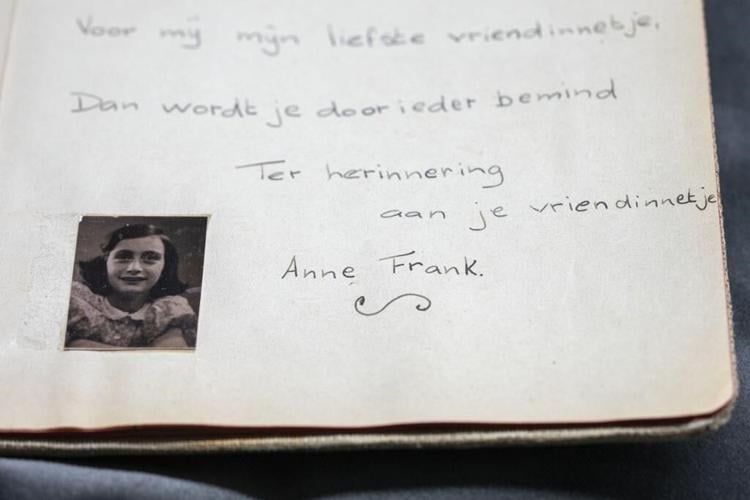 Voor mij mijn liefste vriendinnetje.
Dan wordt je door ieder bemind
Ter herinnering
aan je vriendinnetje
Anne Frank.